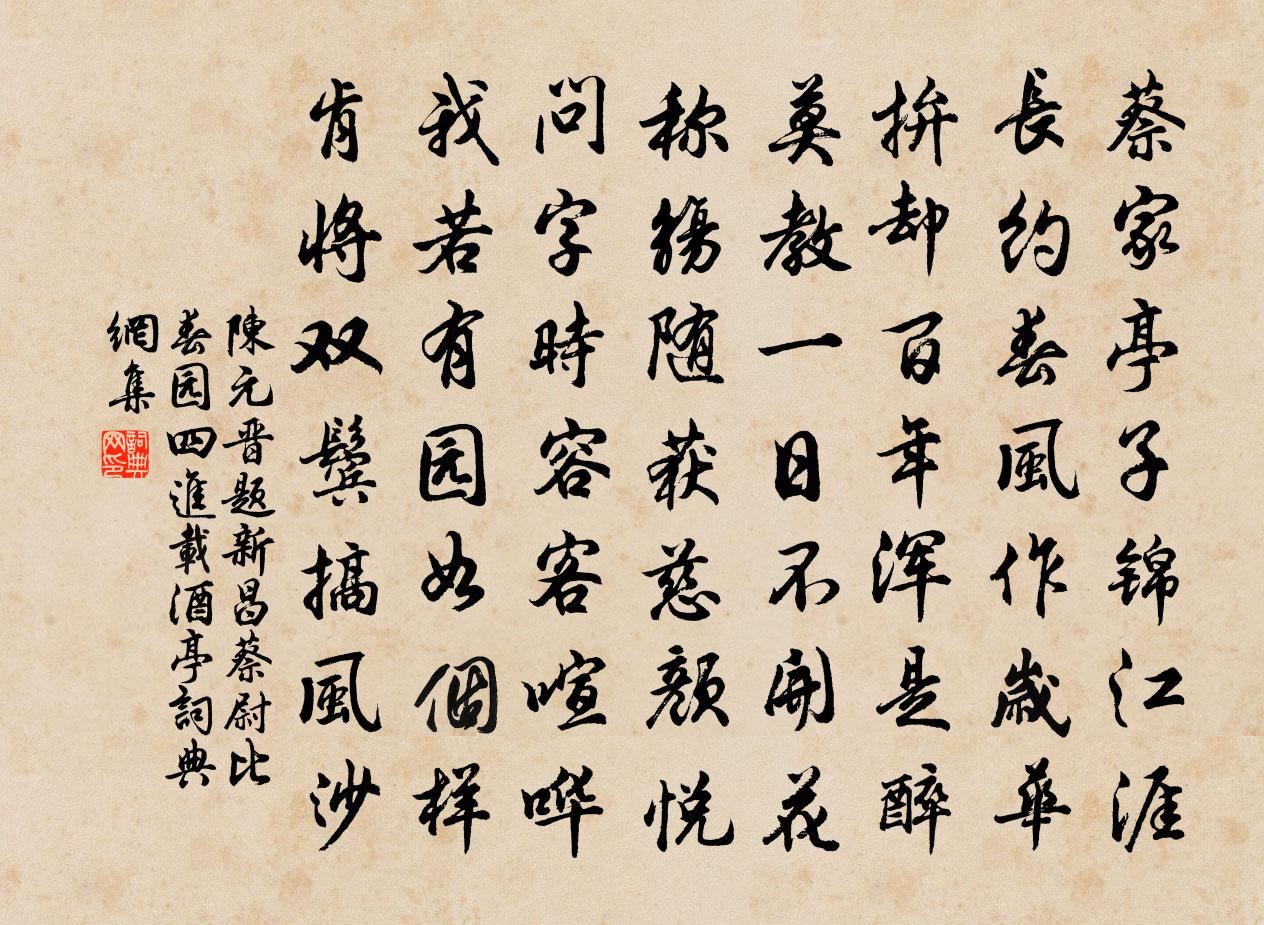 蔡家亭子锦江涯
長约春風作歲華
拚却百年浑是醉
莫教一日不開花
称觞随获慈颜悦
问字時容客喧哗
我若有园如個样
肯将双鬓搞風沙
陳元晋题新昌蔡尉比
春园四進載酒亭詞典
網集
詞典
网印